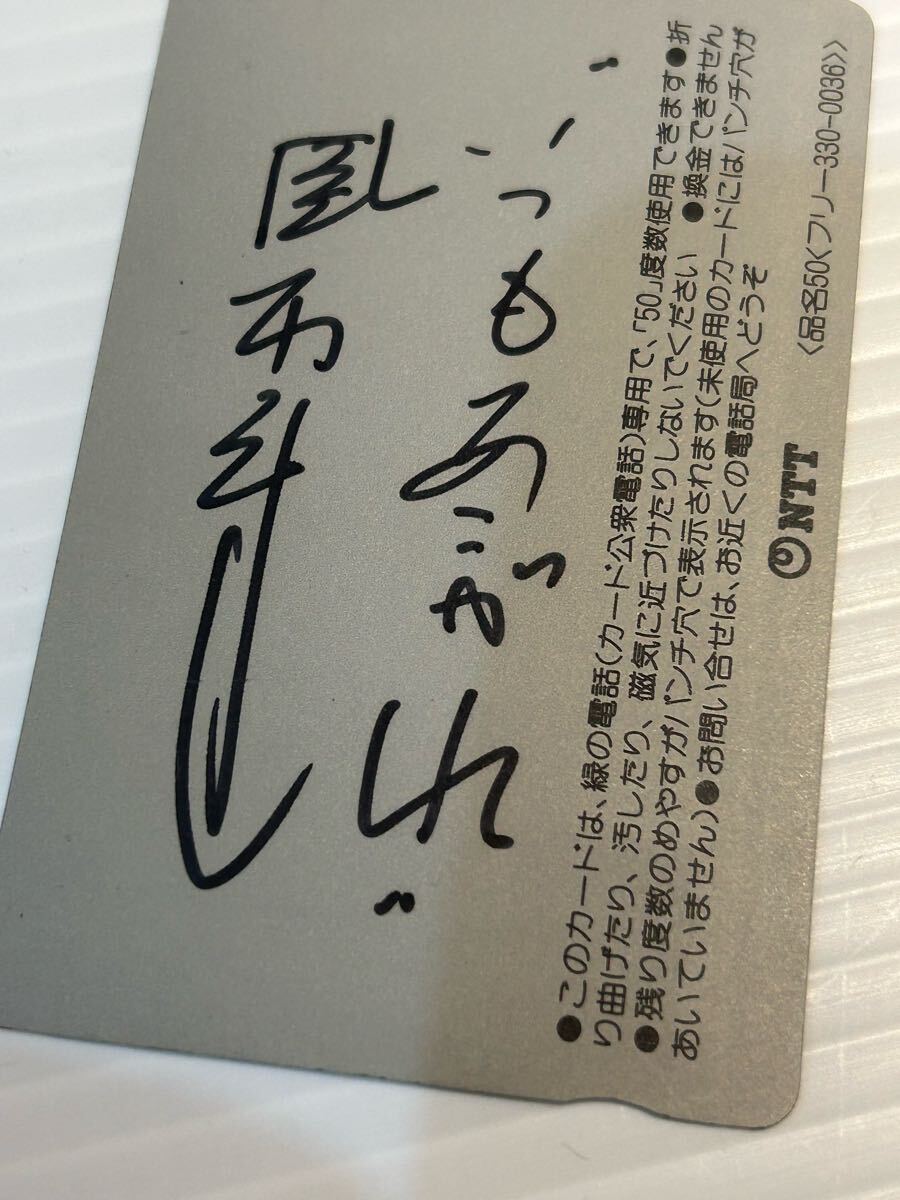 "いつもあこがれ"
●このカードは、緑の電話(カード公衆電話)専用で、「50」度数使用できます●折
り曲げたり、汚したり、磁気に近づけたりしないでください ●換金できません
●残り度数のめやすがパンチ穴で表示されます(未使用のカードにはパンチ穴が
あいていません)●お問い合せは、お近くの電話局へどうぞ
NTT
〈品名50〈フリー330-0036〉〉